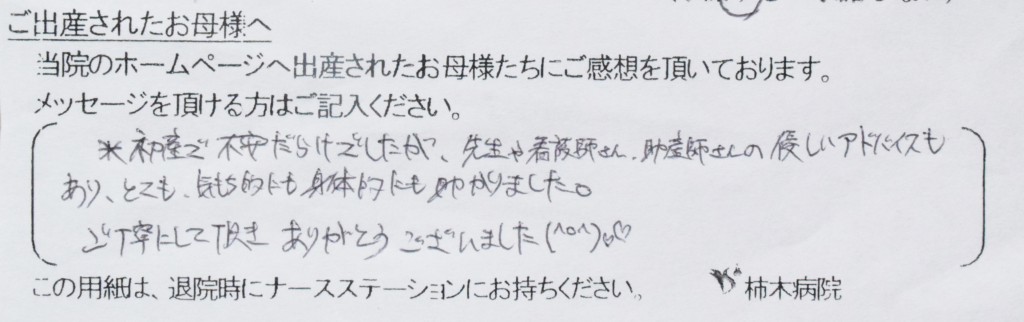 ご出産されたお母様へ
当院のホームページへ出産されたお母様たちにご感想を頂いております。
メッセージを頂ける方はご記入ください。
*初産で不安だらけでしたが、先生や看護師さん、助産師さんの優しいアドバイスも
あり、とても、気持ち的にも身体的にも助かりました。
ご丁寧にして頂き ありがとうございました(^o^)♡♡
この用紙は、退院時にナースステーションにお持ちください。 柿木病院